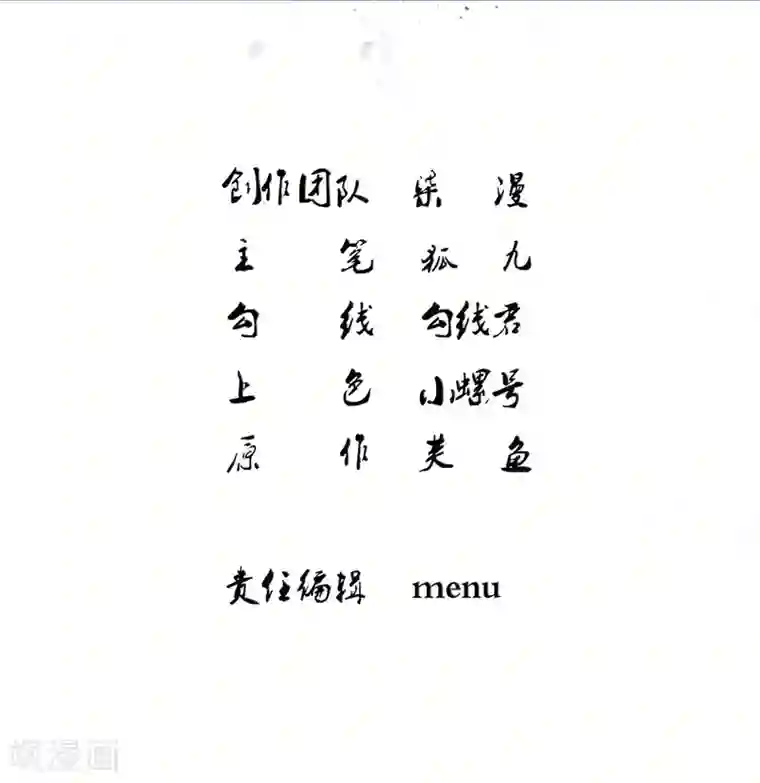 创作团队 柒漫
主笔 狐九
勾线 勾线君
上色 小螺号
原作 芙鱼
责任编辑 menu
飒漫画